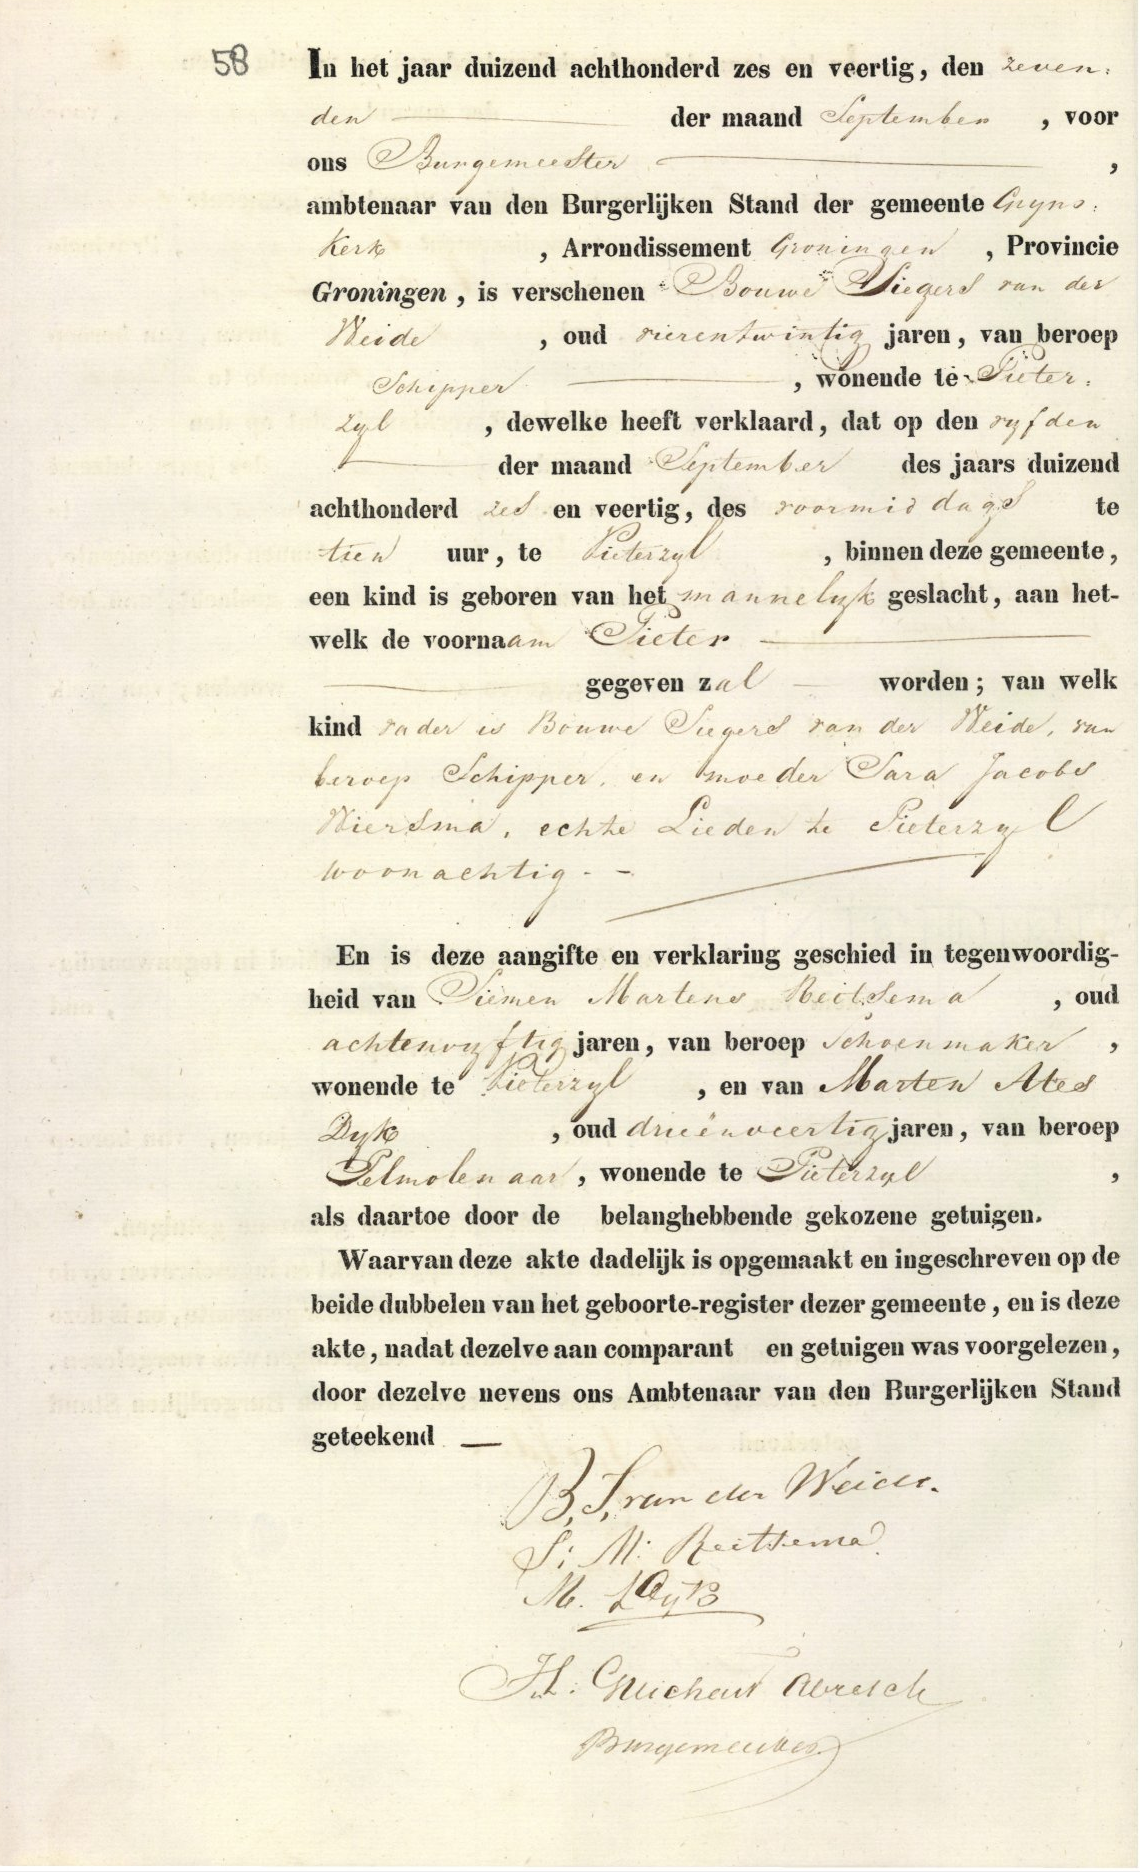 58
In het jaar duizend achthonderd zes en veertig, den zeven-
den der maand September, voor
ons Burgemeester,
ambtenaar van den Burgerlijken Stand der gemeente Gryps-
Kerk, Arrondissement Groningen, Provincie
Groningen, is verschenen Bouwe Siegers van der
Weide, oud vierentwintig jaren, van beroep
Schipper, wonende te Pieter-
zyl, dewelke heeft verklaard, dat op den vyfden
der maand September des jaars duizend
achthonderd zes en veertig, des voormiddags te
tien uur, te Pieterzyl, binnen deze gemeente,
een kind is geboren van het mannelyk geslacht, aan het-
welk de voornaam Pieter
gegeven zal worden; van welk
kind vader is Bouwe Siegers van der Weide, van
beroep Schipper, en moeder Sara Jacobs
Wiersma, echte Lieden te Pieterzyl
woonachtig. -
En is deze aangifte en verklaring geschied in tegenwoordig-
heid van Siemen Martens Reitsema, oud
achtenvyftig jaren, van beroep Schoenmaker,
wonende te Pieterzyl, en van Marten Ates
Dyk, oud drieënveertig jaren, van beroep
Pelmolenaar, wonende te Pieterzyl,
als daartoe door de belanghebbende gekozene getuigen.
Waarvan deze akte dadelijk is opgemaakt en ingeschreven op de
beide dubbelen van het geboorte-register dezer gemeente, en is deze
akte, nadat dezelve aan comparant en getuigen was voorgelezen,
door dezelve nevens ons Ambtenaar van den Burgerlijken Stand
geteekend —
B. S. van der Weide.
S: M: Reitsema
M. Dyk
Abresch
Burgemeester